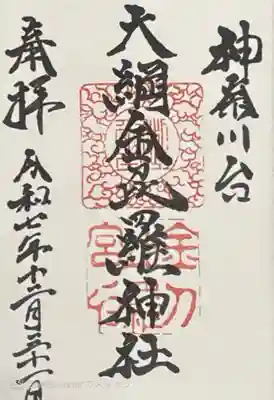 神奈川台
大綱金毘羅神社
奉拝
令和七年十二月三十一日